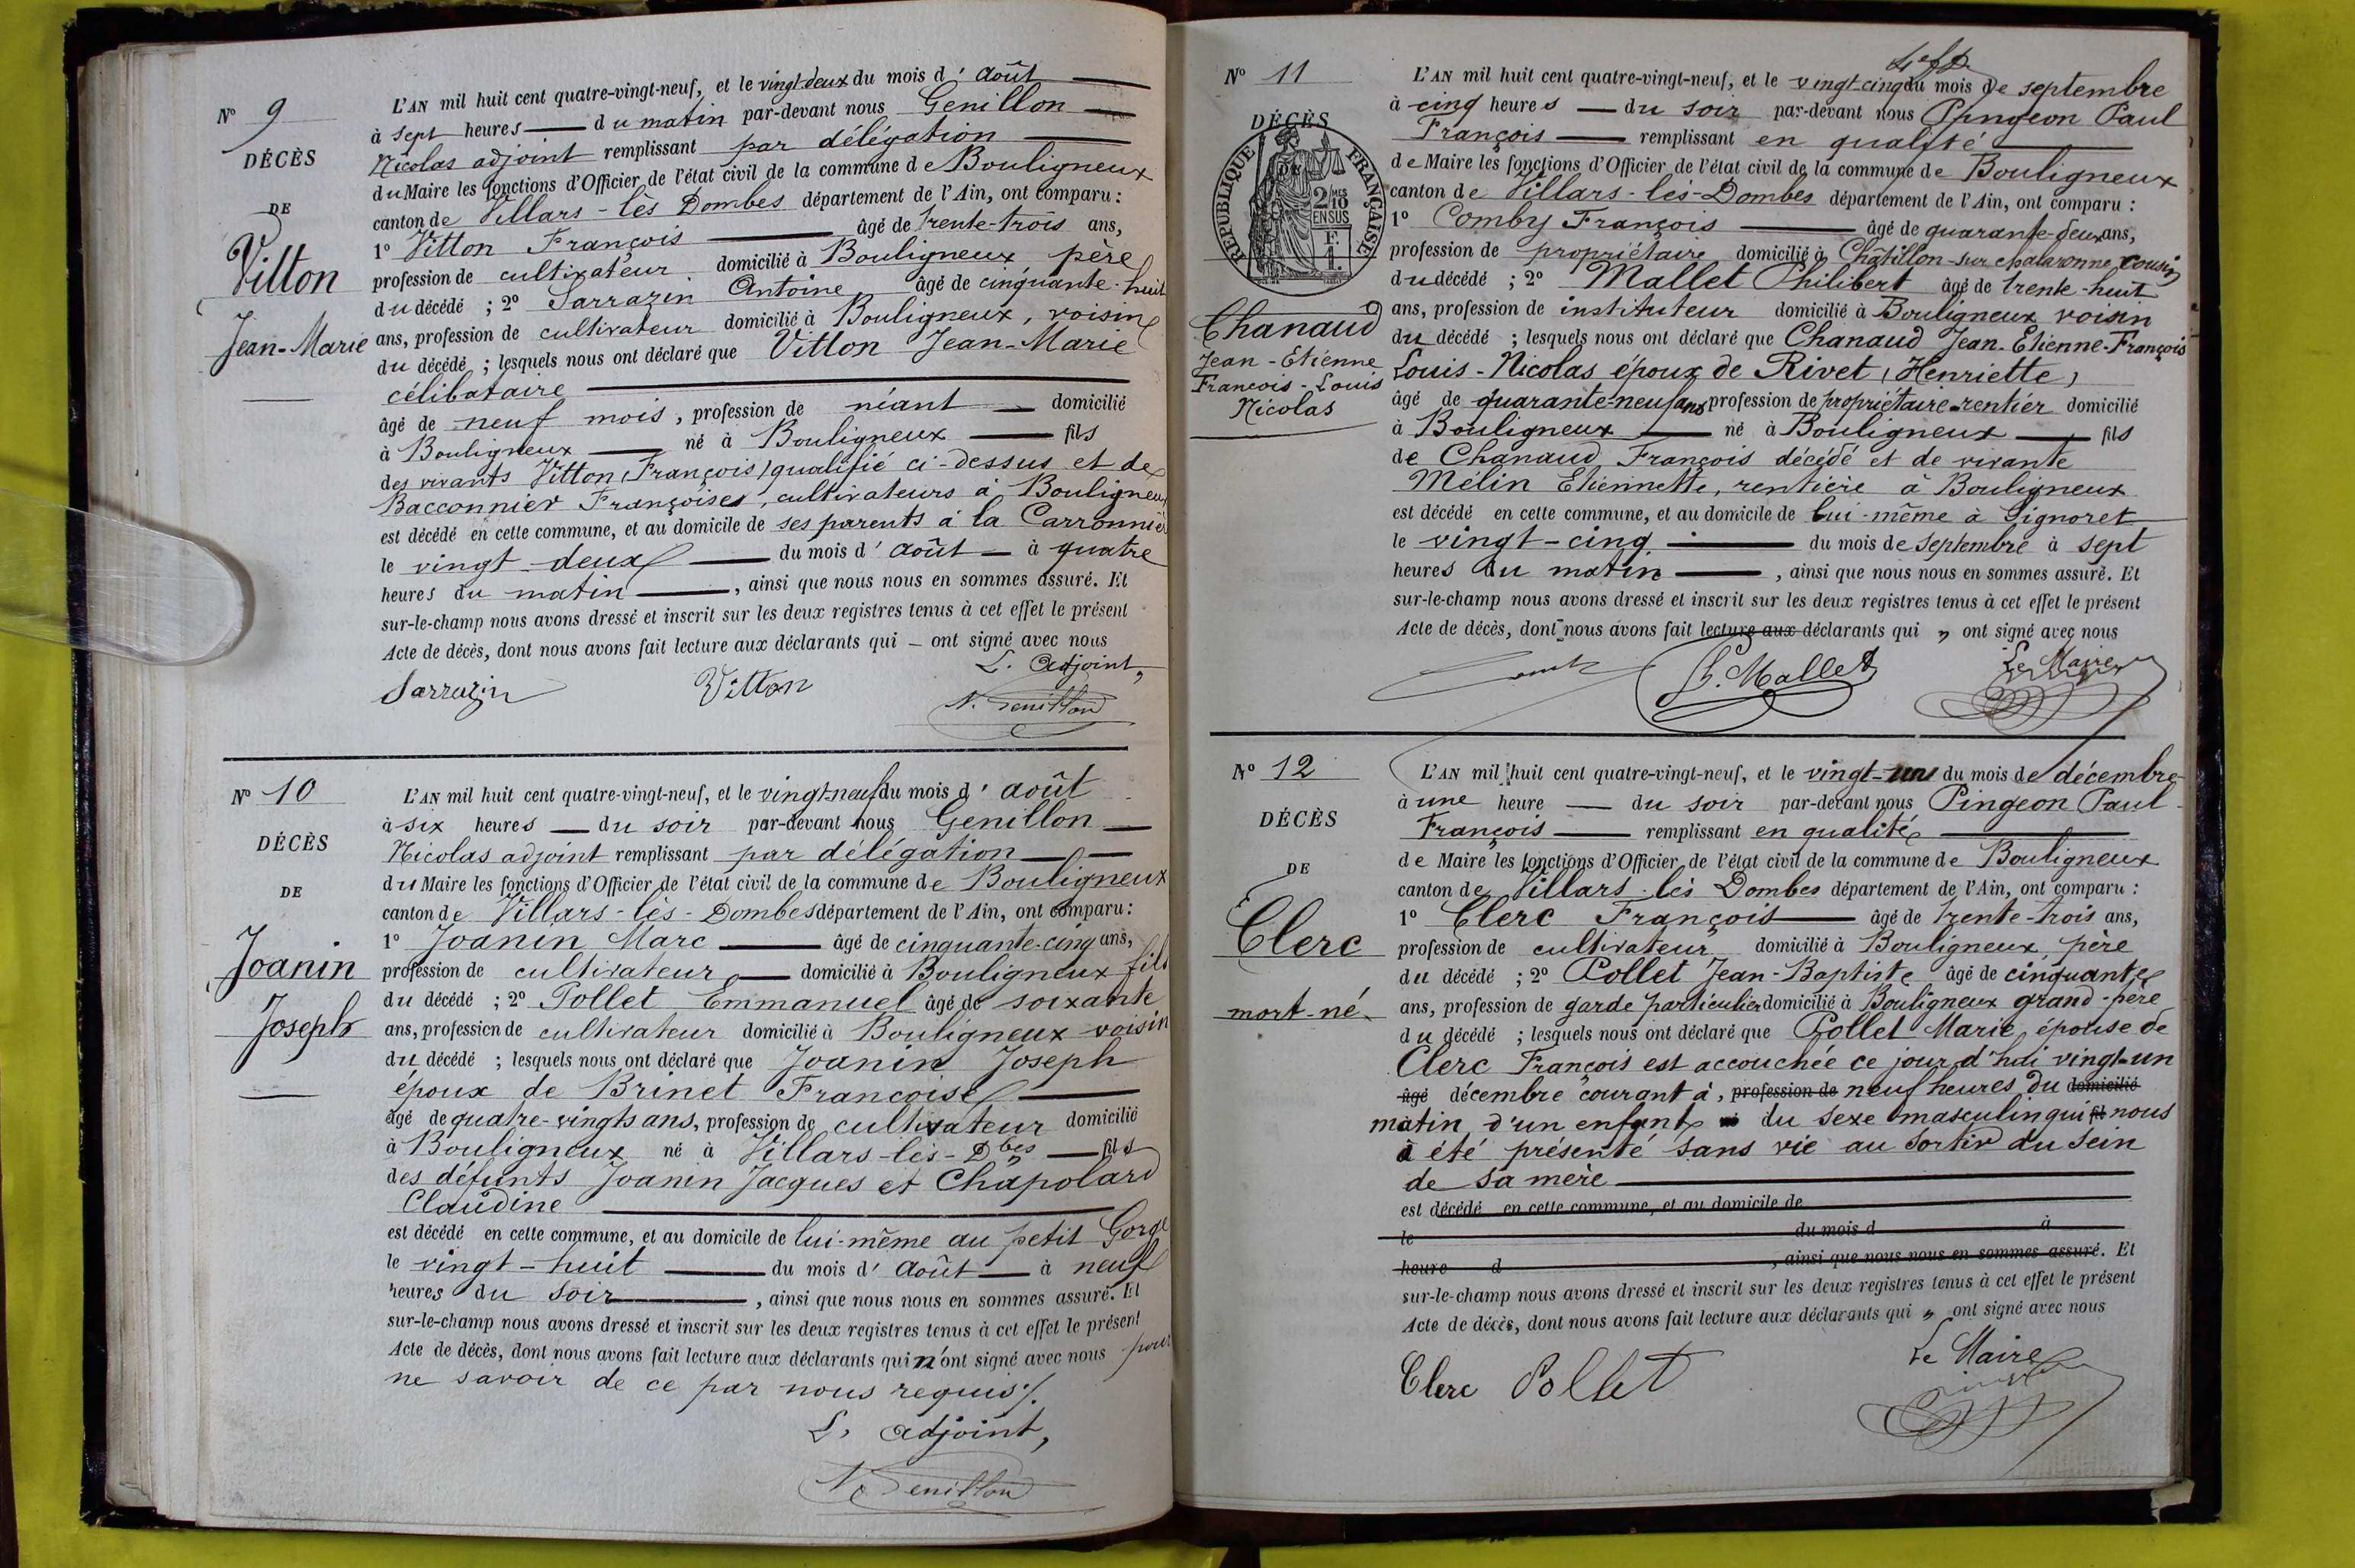 N° 9
DÉCÈS
DE
Vitton
Jean-Marie
L'AN mil huit cent quatre-vingt-neuf, et le vingt-deux du mois d'août
à sept heures du matin par-devant nous Genillon
Nicolas adjoint remplissant par délégation
du Maire les fonctions d'Officier de l'état civil de la commune de Bouligneux
canton de Villars-lès Dombes département de l'Ain, ont comparu :
1° Vitton François âgé de trente-trois ans,
profession de cultivateur domicilié à Bouligneux père
du décédé ; 2° Sarrazin Antoine âgé de cinquante-huit
ans, profession de cultivateur domicilié à Bouligneux, voisin
du décédé ; lesquels nous ont déclaré que Vitton Jean-Marie
célibataire
âgé de neuf mois, profession de néant domicilié
à Bouligneux né à Bouligneux fils
des vivants Vitton (François) qualifié ci-dessus et de
Bacconnier Françoise, cultivateurs à Bouligneux
est décédé en cette commune, et au domicile de ses parents à la
le vingt deux du mois d'août à quatre
heures du matin, ainsi que nous nous en sommes assuré. Et
sur-le-champ nous avons dressé et inscrit sur les deux registres tenus à cet effet le présent
Acte de décès, dont nous avons fait lecture aux déclarants qui — ont signé avec nous
L'adjoint,
Sarrazin Vitton N. Genillon
N° 10
DÉCÈS
DE
Joanin
Joseph
L'AN mil huit cent quatre-vingt-neuf, et le vingt-neuf du mois d'août
à six heures du soir par-devant nous Genillon
Nicolas adjoint remplissant par délégation
du Maire les fonctions d'Officier de l'état civil de la commune de Bouligneux
canton de Villars-lès-Dombes département de l'Ain, ont comparu :
1° Joanin Marc âgé de cinquante-cinq ans,
profession de cultivateur domicilié à Bouligneux fils
du décédé ; 2° Pollet Emmanuel âgé de soixante
ans, profession de cultivateur domicilié à Bouligneux voisin
du décédé ; lesquels nous ont déclaré que Joanin Joseph
époux de Brinet Françoise
âgé de quatre-vingts ans, profession de cultivateur domicilié
à Bouligneux né à Villars-lès-Dbes fils
des défunts Joanin Jacques et Chapolard
Claudine
est décédé en cette commune, et au domicile de lui-même au petit Gorge
le vingt-huit du mois d'août à neuf
heures du soir, ainsi que nous nous en sommes assuré. Et
sur-le-champ nous avons dressé et inscrit sur les deux registres tenus à cet effet le présent
Acte de décès, dont nous avons fait lecture aux déclarants qui n'ont signé avec nous pour
ne savoir de ce par nous requis /.
L'adjoint,
N. Genillon
N° 11
DÉCÈS
DE
RÉPUBLIQUE FRANÇAISE
2/10 MES
EN SUS
Chanaud
Jean-Etienne
François-Louis
Nicolas
L'AN mil huit cent quatre-vingt-neuf, et le vingt-cinq du mois de septembre
à cinq heures du soir par-devant nous Pingeon Paul
François remplissant en qualité
de Maire les fonctions d'Officier de l'état civil de la commune de Bouligneux
canton de Villars-lès-Dombes département de l'Ain, ont comparu :
1° Comby François âgé de quarante-deux ans,
profession de propriétaire domicilié à Châtillon-sur-chalaronne, cousin
du décédé ; 2° Mallet Philibert âgé de trente-huit
ans, profession de instituteur domicilié à Bouligneux voisin
du décédé ; lesquels nous ont déclaré que Chanaud Jean-Etienne-François
Louis-Nicolas époux de Rivet (Henriette)
âgé de quarante-neuf ans profession de propriétaire-rentier domicilié
à Bouligneux né à Bouligneux fils
de Chanaud François décédé et de vivante
Mélin Etiennette, rentière à Bouligneux
est décédé en cette commune, et au domicile de lui-même à Signoret
le vingt-cinq du mois de septembre à sept
heures du matin, ainsi que nous nous en sommes assuré. Et
sur-le-champ nous avons dressé et inscrit sur les deux registres tenus à cet effet le présent
Acte de décès, dont nous avons fait lecture aux déclarants qui „ ont signé avec nous
Le Maire
P. Mallet
N° 12
DÉCÈS
DE
Clerc
mort-né
L'AN mil huit cent quatre-vingt-neuf, et le vingt-un du mois de décembre
à une heure du soir par-devant nous Pingeon Paul
François remplissant en qualité
de Maire les fonctions d'Officier de l'état civil de la commune de Bouligneux
canton de Villars-lès Dombes département de l'Ain, ont comparu :
1° Clerc François âgé de trente-trois ans,
profession de cultivateur domicilié à Bouligneux père
du décédé ; 2° Pollet Jean-Baptiste âgé de cinquante
ans, profession de garde particulier domicilié à Bouligneux grand-père
du décédé ; lesquels nous ont déclaré que Pollet Marie, épouse de
Clerc François est accouchée ce jour d'hui vingt-un
âgé décembre courant à, profession de neuf heures du domicilié
matin d'un enfant du sexe masculin qui fil nous
a été présenté sans vie au sortir du sein
de sa mère
est décédé en cette commune, et au domicile de
le du mois d à
heure d , ainsi que nous nous en sommes assuré. Et
sur-le-champ nous avons dressé et inscrit sur les deux registres tenus à cet effet le présent
Acte de décès, dont nous avons fait lecture aux déclarants qui „ ont signé avec nous
Le Maire
Clerc Pollet